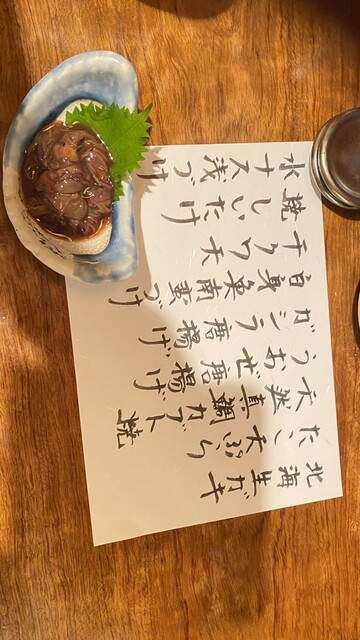 北海生ガキ
たこ天ぷら
天然真鯛カブト焼
うおぜ唐揚げ
ガシラ唐揚げ
白身魚南蛮づけ
チクワ天
焼しいたけ
水ナス浅づけ